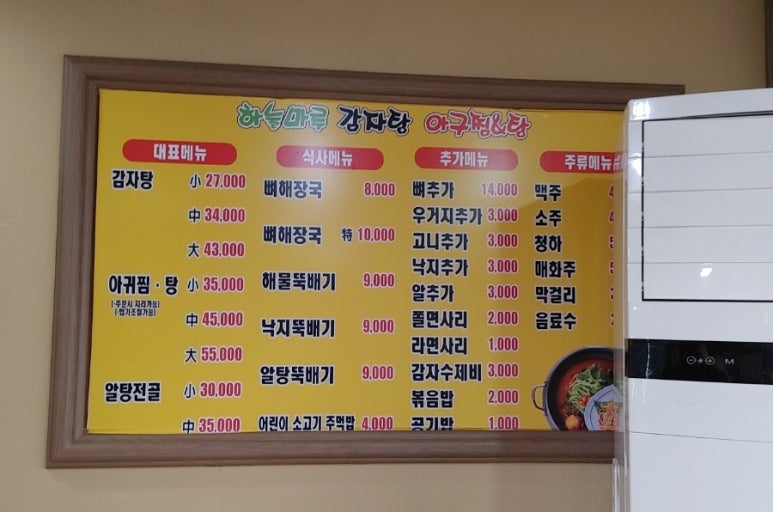 하늘마루 감자탕 아구찜&탕
대표메뉴
감자탕 小 27,000
中 34,000
大 43,000
아귀찜·탕 小 35,000
(·주문시 지리가능)
(·맵기조절가능)
中 45,000
大 55,000
알탕전골 小 30,000
中 35,000
식사메뉴
뼈해장국 8,000
뼈해장국 特 10,000
해물뚝배기 9,000
낙지뚝배기 9,000
알탕뚝배기 9,000
어린이 소고기 주먹밥 4,000
추가메뉴
뼈추가 14,000
우거지추가 3,000
고니추가 3,000
낙지추가 3,000
알추가 3,000
쫄면사리 2,000
라면사리 1,000
감자수제비 3,000
볶음밥 2,000
공기밥 1,000
주류메뉴
맥주
소주
청하
매화주
막걸리
음료수
M